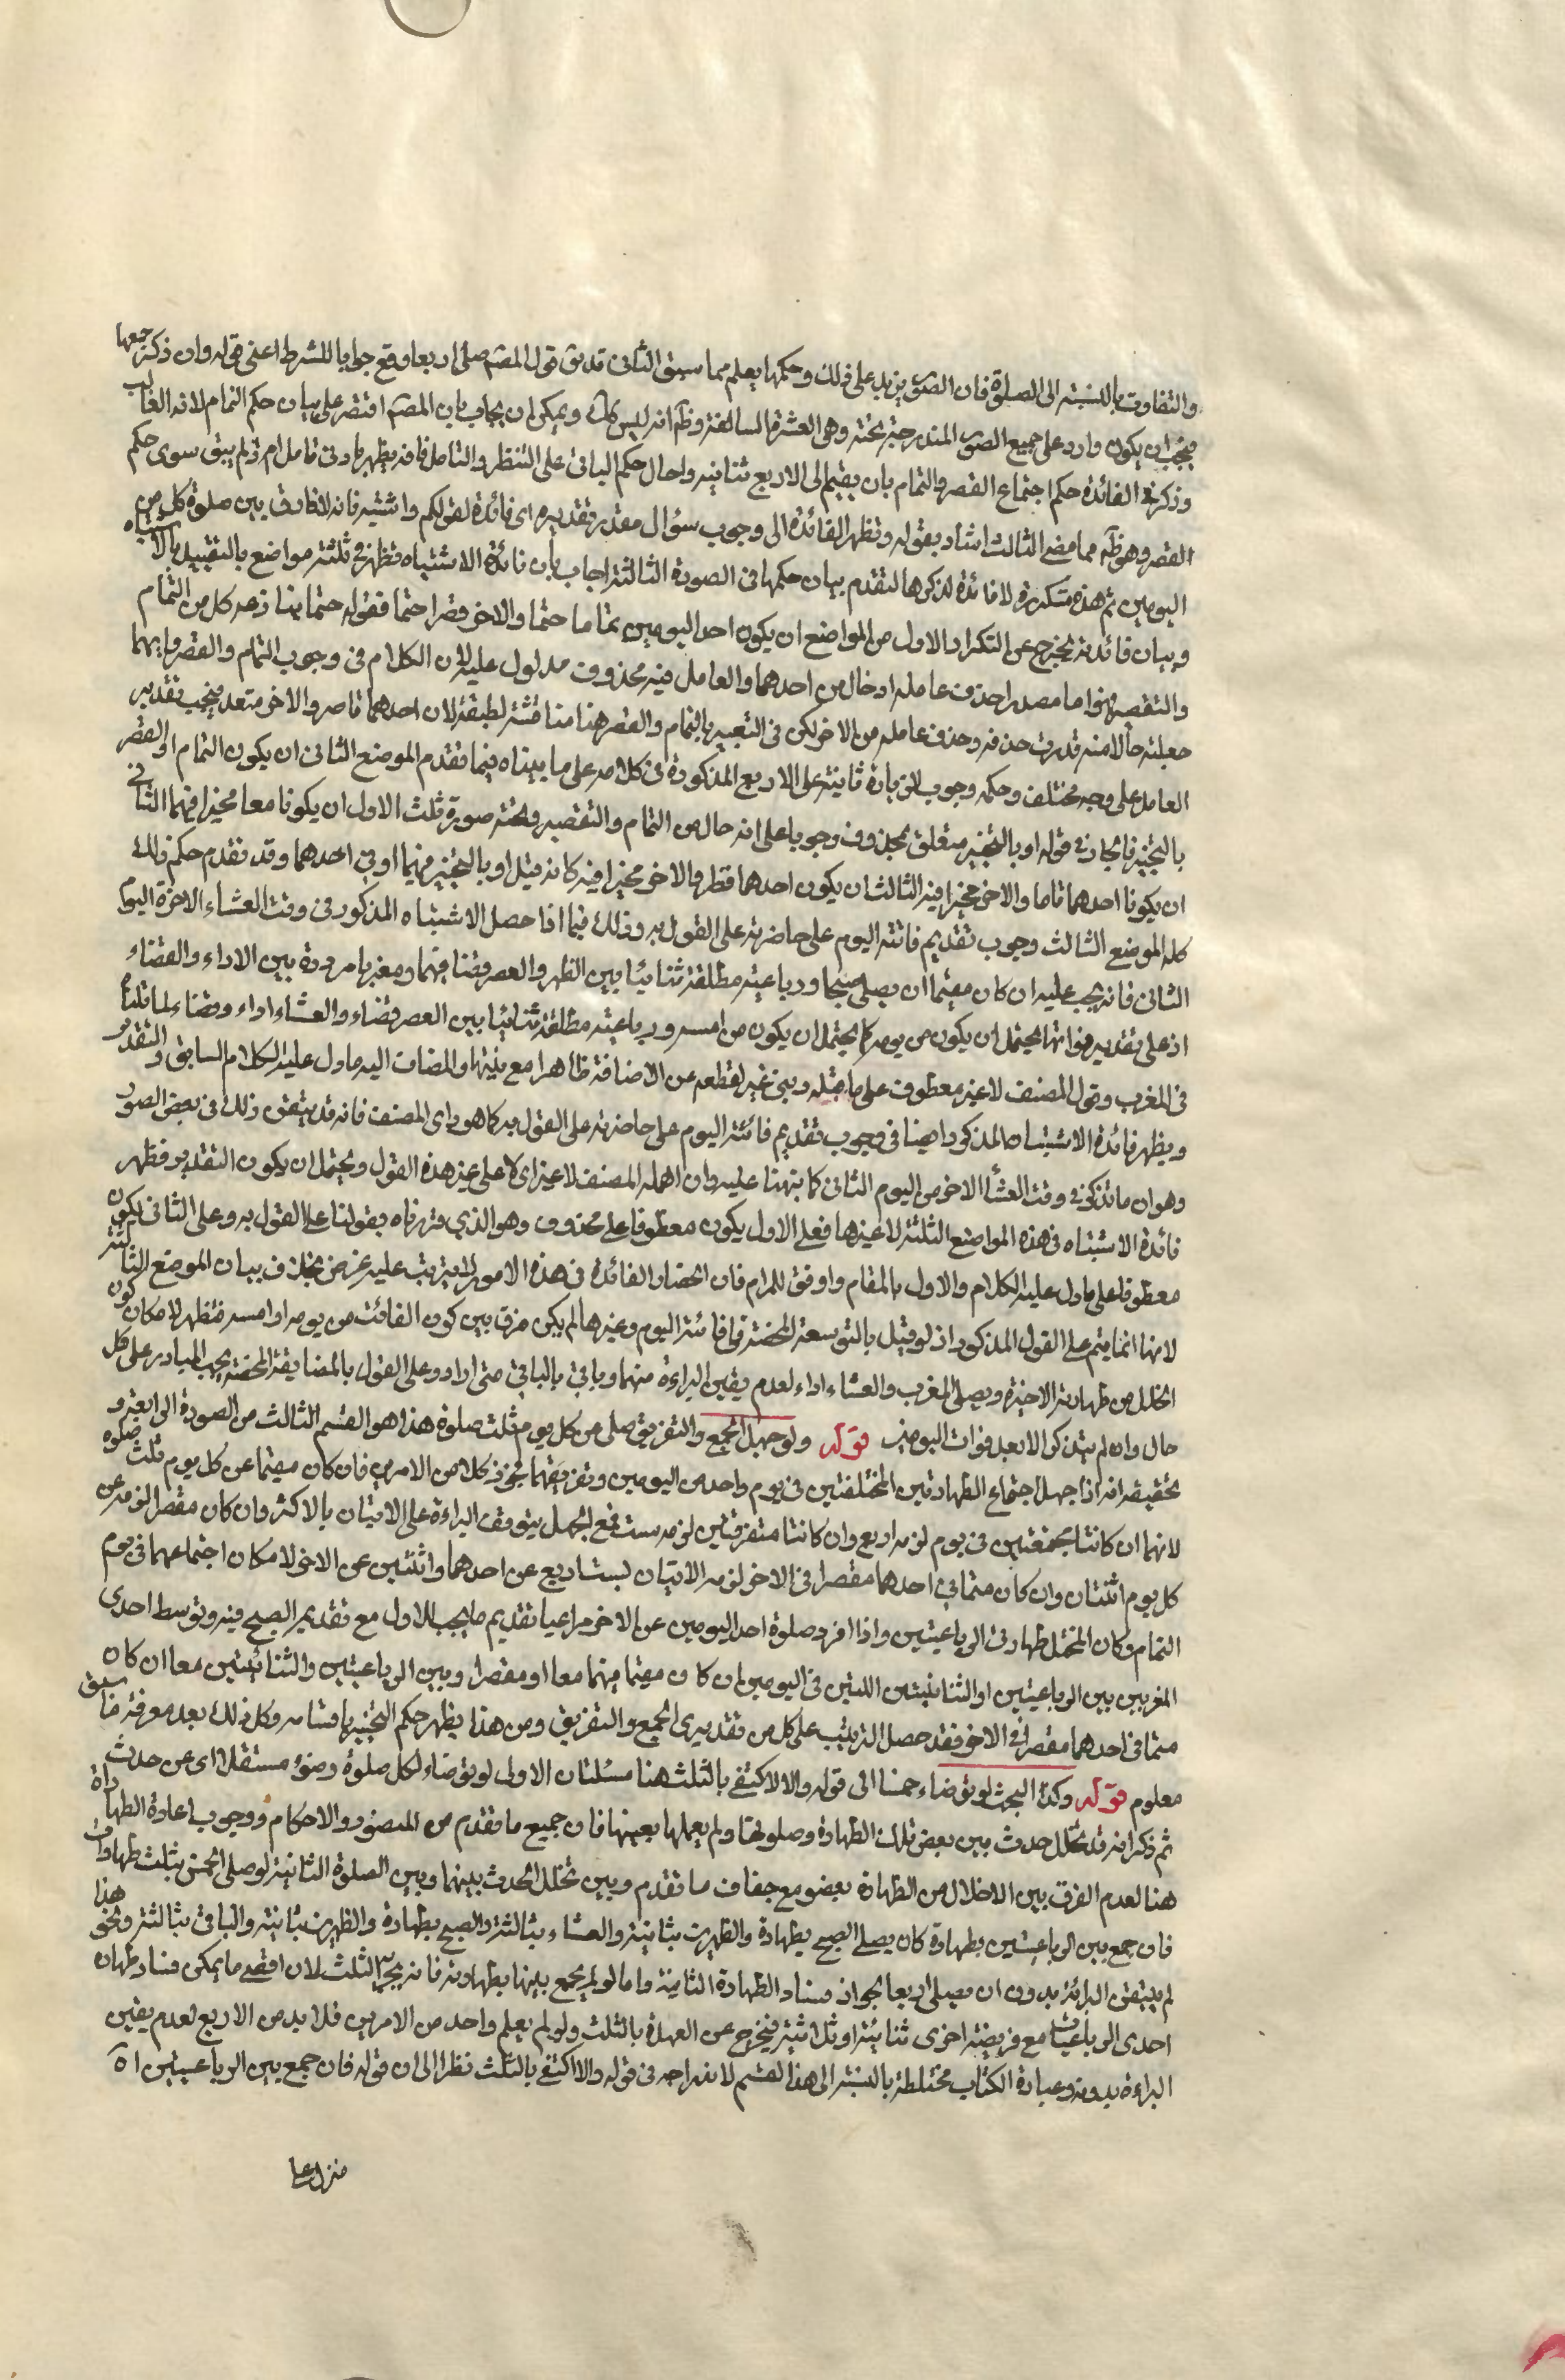 والتفاوت بالنسبة الى الصلوة فان الصور يزيد على ذلك وحكمها يعلم مما سبق الثانى قد بق قول المصم صلى اربعا وقع جوابا للشرط اعنى قوله وان ذكر جمعها
فيجب ان يكون واردا على جميع الصور المندرجة تحته وهى العشرة السالفة وظم انه ليس كك ويمكن ان يجاب بان المصم اقتصر على بيان حكم التمام لانه الغالب
وذكر فى الفائدة حكم اجتماع القصر والتمام بان يضم الى الاربع ثنائية واحال حكم الباقى على التنظر والتامل فانه يظهر بادنى تامل اذ لم يبق سوى حكم
القصر وهو ظم مما مضى الثالث اشار بقوله وتظهر الفائدة الى وجوب سؤال مقدر تقديره اى فائدة لقولكم واشتبه فانه لا فارق بين صلوة كل من
اليومين ثم هذه متكررة لا فائدة لذكرها لتقدم بيان حكمها فى الصورة الثالثة اجاب بان فائدة الاشتباه تظهر فى ثلثة مواضع بالتقييد بالاشتباه
وبيان فائدته يخرج عن التكرار الاول من المواضع ان يكون احد اليومين تماما حتما والاخر قصرا حتما فقوله حتما بهنا نزعه كل من التمام
والتقصير فهو اما مصدر احذف عامله او حال من احدهما والعامل فيه محذوف مدلول عليه لان الكلام فى وجوب التمام والقصر وايهما
جعلته حالا منه قدرت حذفه وحذف عامله من الاخر لكن فى التعبير بالتمام والقصر هنا مناقشة لطيفة لان احدهما قاصر والاخر متعد فيجب تقدير
العامل على وجه مختلف وحكمه وجوب الزيادة ثنائية على الاربع المذكورة فى كلامه على ما بيناه فيما تقدم الموضع الثانى ان يكون التمام او القصر
بالتخيير فالجار فى قوله او بالتخيير متعلق بمحذوف وجوبا على انه حال من التمام والتقصير وتحته صورة ثلث الاول ان يكونا معا مخيرا فيهما الثانى
ان يكونا احدهما تاما والاخر مخيرا فيه الثالث ان يكون احدهما قصرا والاخر مخيرا فيه كانه قيل او بالتخيير فيهما او فى احدهما وقد تقدم حكم ذلك
كله الموضع الثالث وجوب تقديم فائتة اليوم على حاضرته على القول به وذلك فيما اذا حصل الاشتباه المذكور فى وقت العشاء الاخرة اليوم
الثانى فانه يجب عليه ان كان مقيما ان يصلى صبحا ورباعية مطلقة ثنائيا بين الظهر والعصر قضا فيهما ومغربا مرددة بين الاداء والقضاء
اذ على تقدير فواتها يحتمل ان يكون من يومه كما يحتمل ان يكون من امسه ورباعية مطلقة ثنائيا بين العصر قضاء والعشاء اداء وقضاء لما قلناه
فى المغرب وقول المصنف لا غير معطوف على ما قبله وبنى غير لقطعه عن الاضافة ظاهرا مع نيتها والمضاف اليه ما دل عليه الكلام السابق والتقدير
ويظهر فائدة الاشتباه المذكور ايضا فى وجوب تقديم فائتة اليوم على حاضرته على القول به كما هو راى المصنف فانه قد يتفق ذلك فى بعض الصور
وهو ان ما تذكر فى وقت العشأ الاخر من اليوم الثانى كما نبهنا عليه وان اهمله المصنف لا غير اى لا على غير هذه القول ويحتمل ان يكون التقدير فتظهر
فائدة الاشتباه فى هذه المواضع الثلثة لا غيرها فعلى الاول يكون معطوفا على محذوف وهو الذى قررناه بقولنا على القول به وعلى الثانى يكون
معطوفا على ما دل عليه الكلام والاول بالمقام واوفق للمرام فان انحصار الفائدة فى هذه الامور لا يترتب عليه غرض بخلاف بيان الموضع الثالث
لانها انما يتم على القول المذكور اذ لو قيل بالتوسعة المحضة فى فائتة اليوم وغيرها لم يكن فرق بين كون الفائت من يومه او امسه فتظهر لامكان كون
الخلل من طهارته الاخيرة ويصلى المغرب والعشاء اداء لعدم يقين البراءة منهما وياتى بالباقى متى اراد وعلى القول بالمضايقة المحضة يجب المبادر على كل
حال وان لم يتذكر الا بعد فوات اليومين قوله ولو جهل الجمع والتفريق صلى من كل يوم ثلث صلوة هذا هو القسم الثالث من الصورة الرابعة و
تحقيقه انه اذا جهل اجتماع الطهارتين المختلفتين فى يوم واحد من اليومين وتفريقهما يجوز كلا من الامرين فان كان مقيما عن كل يوم ثلث صلوة
لانهما ان كانتا مجتمعتين فى يوم لزمه اربع وان كانتا متفرقتين لزمه ست فمع الجهل يتوقف البراءة على الاتيان بالاكثر وان كان مقصرا لزمه عن
كل يوم اثنتان وان كان متما فى احدهما مقصرا فى الاخر لزمه الاتيان بست اربع عن احدهما واثنتين عن الاخر لامكان اجتماعهما فى يوم
التمام وكان المختل طهارتى الرباعيتين واذا افرد صلوة احد اليومين عن الاخر مراعيا تقديم ما يجب للاول مع تقديم الصبح فيه وتوسط احدى
المغربين بين الرباعيتين او الثنائيتين اللتين فى اليومين ان كان مقيما فيهما معا او مقصرا وبين الرباعيتين والثنائيتين معا ان كان
متما فى احدهما مقصرا فى الاخر فقد حصل الترتيب على كل من تقديرى الجمع والتفريق ومن هذا يظهر حكم التخيير باقسامه وكل ذلك بعد معرفة ما سبق
معلوم قوله وكذا البحث لو توضاء خمسا الى قوله والا لاكتفى بالثلث هنا مسئلتان الاولى لو توضاء لكل صلوة وضوء مستقلا اى عن حدث
ثم ذكر انه قد تخلل حدث بين بعض تلك الطهارة وصلوتها ولم يعلمها بعينها فان جميع ما تقدم من الصور والاحكام ووجوب اعادة الطهارة
هنا لعدم الفرق بين الاخلال من الطهارة بعضو مع جفاف ما تقدم وبين تخلل الحدث بينهما وبين الصلوة الثانية لو صلى الخمس بثلث طهارات
فان جمع بين الرباعيتين بطهارة كان يصلى الصبح بطهارة والظهرين بثانية والعشاء بثالثة والصبح بطهارة والظهرين بثانية والباقى بثالثة ونحو هذا
لم يتفق البرائة بدون ان يصلى اربعا لجواز فساد الطهارة الثانية واما لو لم يجمع بينها بطهارته فانه يجزى الثلث لان اقصى ما يمكن فساد طهارة
احدى الرباعيات مع فريضة اخرى ثنائية او ثلاثية فيخرج عن العهدة بالثلث ولو لم يعلم واحد من الامرين فلا بد من الاربع لعدم يقين
البراءة بدونه وعبارة الكتاب مختلطة بالنسبة الى هذا القسم لاندراجه فى قوله والا اكتفى بالثلث نظرا الى ان قوله فان جمع بين الرباعيتين اه